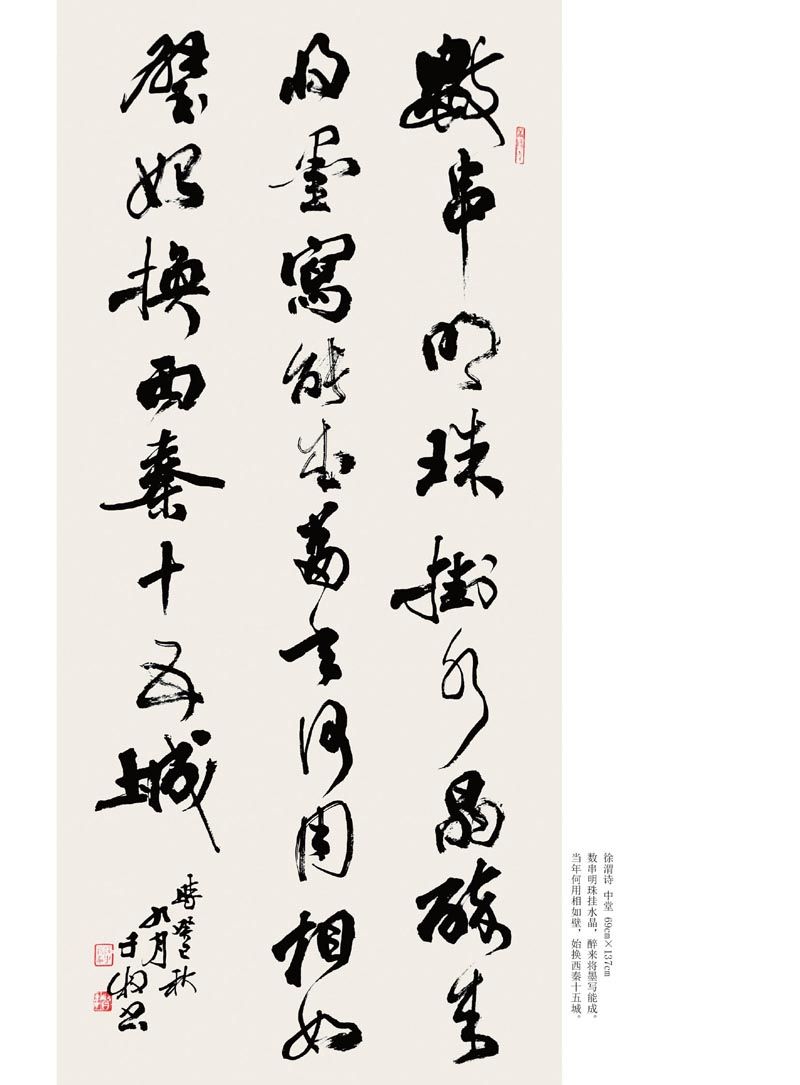 數串明珠掛水晶醉來
将墨寫能成當年何用相如
璧始換西秦十五城
時癸巳秋
九月
书
徐渭诗 中堂 69cm×137cm
数串明珠挂水晶，醉来将墨写能成。
当年何用相如壁，始换西秦十五城。